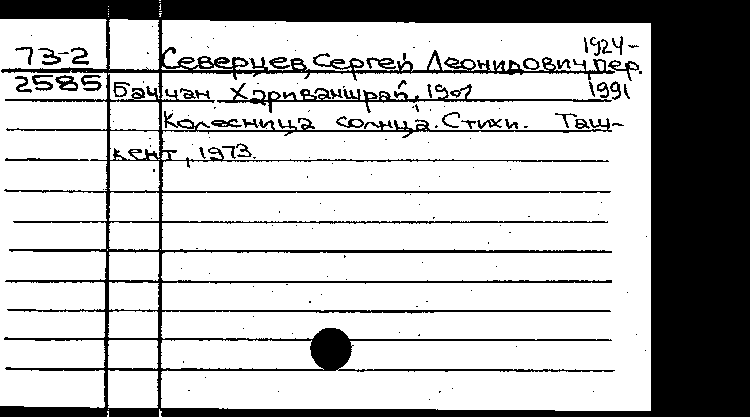 1924-
73-2 Северцев, Сергей Леонидович, пер.
2585 Баччан Хариваншрай, 1907 1991
Колесница солнца. Стихи. Таш-
кент, 1973.